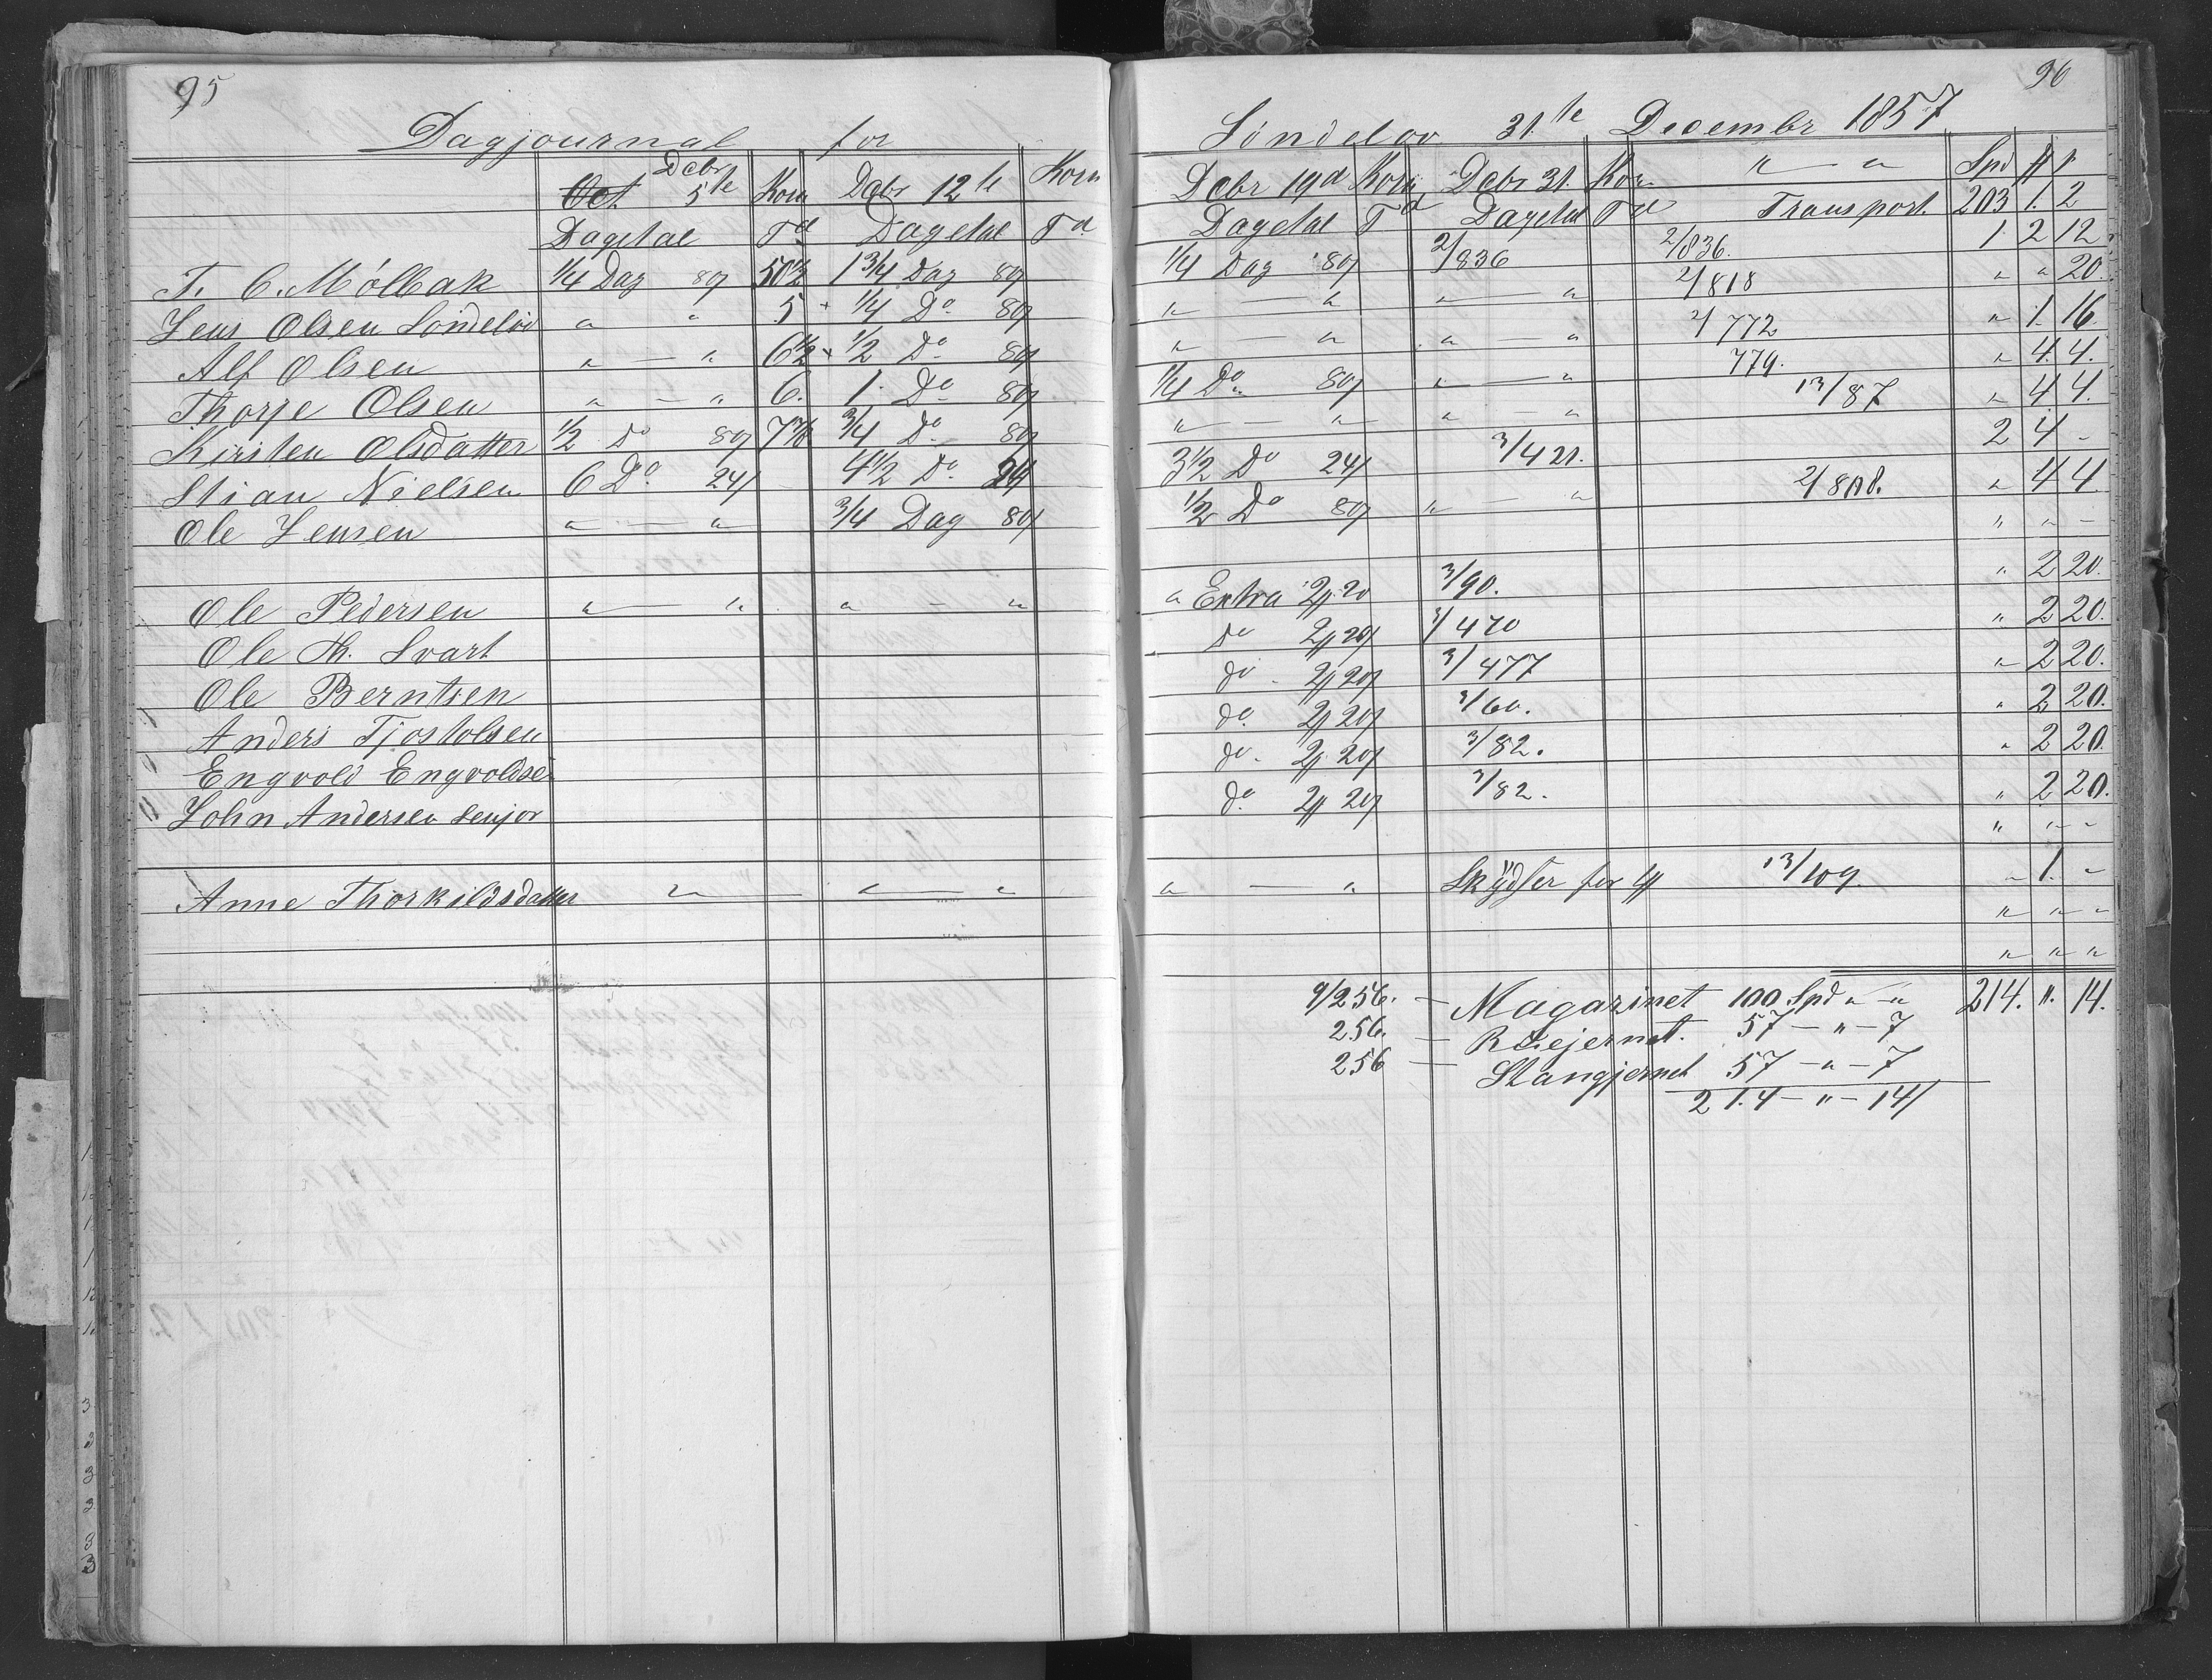 95
Dagjournal for
Oct Debr 5te Korn Debr 12te Korn
Dagetal Td Dagetal Td
T. C. Mólbak 1/4 Dag 80 50 1/2 1 3/4 Dag 80
Jens Olsen Sóndelóv " " 5 + 1/4 Do 80
Alf Olsen " — " 6 1/2 + 1/2 Do 80
Thorje Olsen " — " 6. 1. Do 80
Kirsten Olsdatter 1/2 Do 80 3/4 Do 80
Stian Nielsen 6 Do 24 4 1/2 Do 24
Ole Jensen " — " 3/4 Dag 80
Ole Pedersen " — " " — "
Ole Th. Svart
Ole Berntsen
Anders Tjostolsen
Engvold Engvoldsen
John Andersen senjor
Anne Thorkildsdatter " — " — "
96
Sóndelóv 31.te Decembr 1857
Debr 19d Korn Debr 31. Kor " — " Spd
Dagetal Td Dagetal Td Transport. 203 1. 2
1/4 Dag 80 2/836 2/836. 1. 2 12
" — " " — " 2/818 " " 20.
" — " " — " 2/772 " 1. 16.
1/4 Do 80 " — " 779. " 4. 4.
" — " " — " 13/87 " 4 4.
3 1/2 Do 24 3/421. 2 4 -
1/2 Do 80 " — " 2/808. " 4 4.
" " -
" Extra 2 20 3/90. " 2 20.
do 2 20 3/470 " 2 20.
do 2 20 3/477 " 2 20.
do. 2 20 3/60. " 2 20.
do. 2 20 3/82. " 2 20.
do. 2 20 3/82. " 2 20.
" " -
" — " Skydser for 13/109. " 1. -
" " -
" " "
9/256. — Magazinet 100 Spd " — " 214. ". 14.
256. — Ruejernet. 57 — " — 7
256 — Stangjernet 57 — " — 7
214 — " — 14